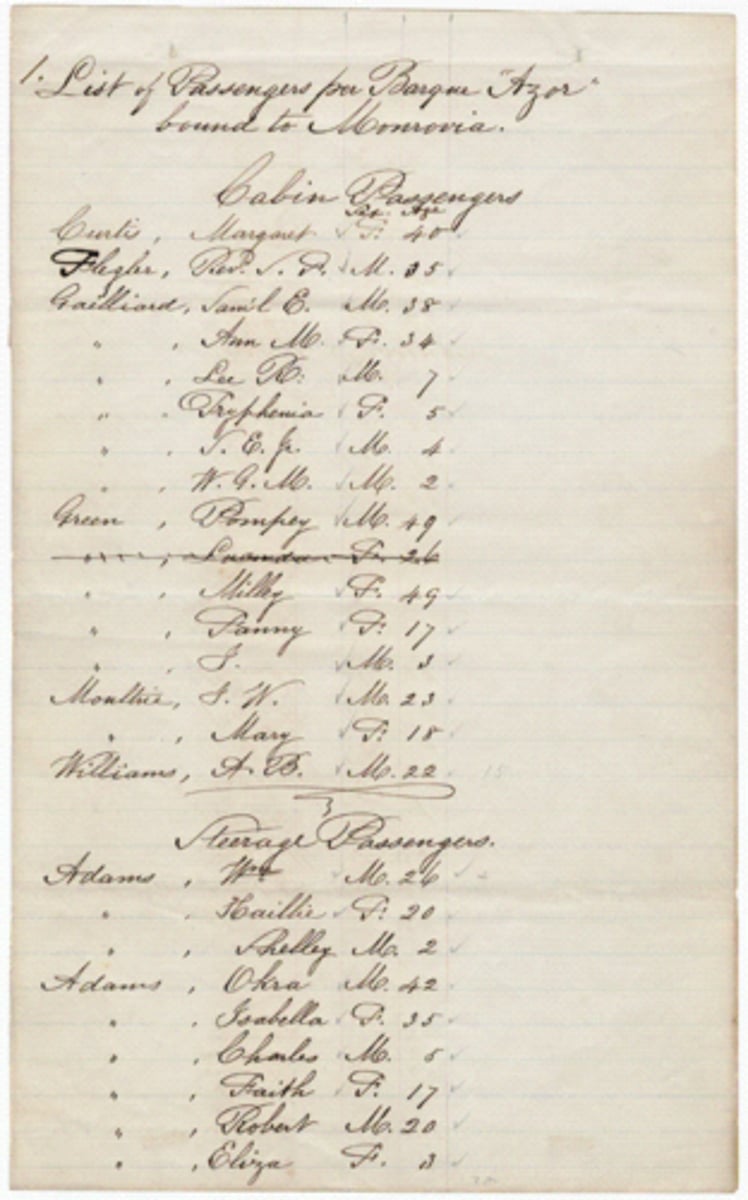 1. List of Passengers per Barque "Azor"
bound to Monrovia.
Cabin Passengers
Sex. Age
Curtis, Margaret F. 40
Flegler, Rev. S. F. M. 35
Gailliard, Sam'l E. M. 38
" , Ann M. F. 34
" , Lee R: M. 7
" , Tryphenia F. 5
" , S. E. Jr. M. 4
" , W. G. M. M. 2
Green , Pompey M. 49
" , Lucinda F. 26
" , Milley F. 49
" , Fanny F. 17
" , J. M. 3
Moultrie, J. W. M. 23
" , Mary F. 18
Williams, A. B. M. 22 15
Steerage Passengers.
Adams , Wm M. 26
" , Haillie F. 20
" , Shelley M. 2
Adams , Okra M. 42
" , Isabella F. 35
" , Charles M. 5
" , Faith F. 17
" , Robert M. 20
" , Eliza F. 3